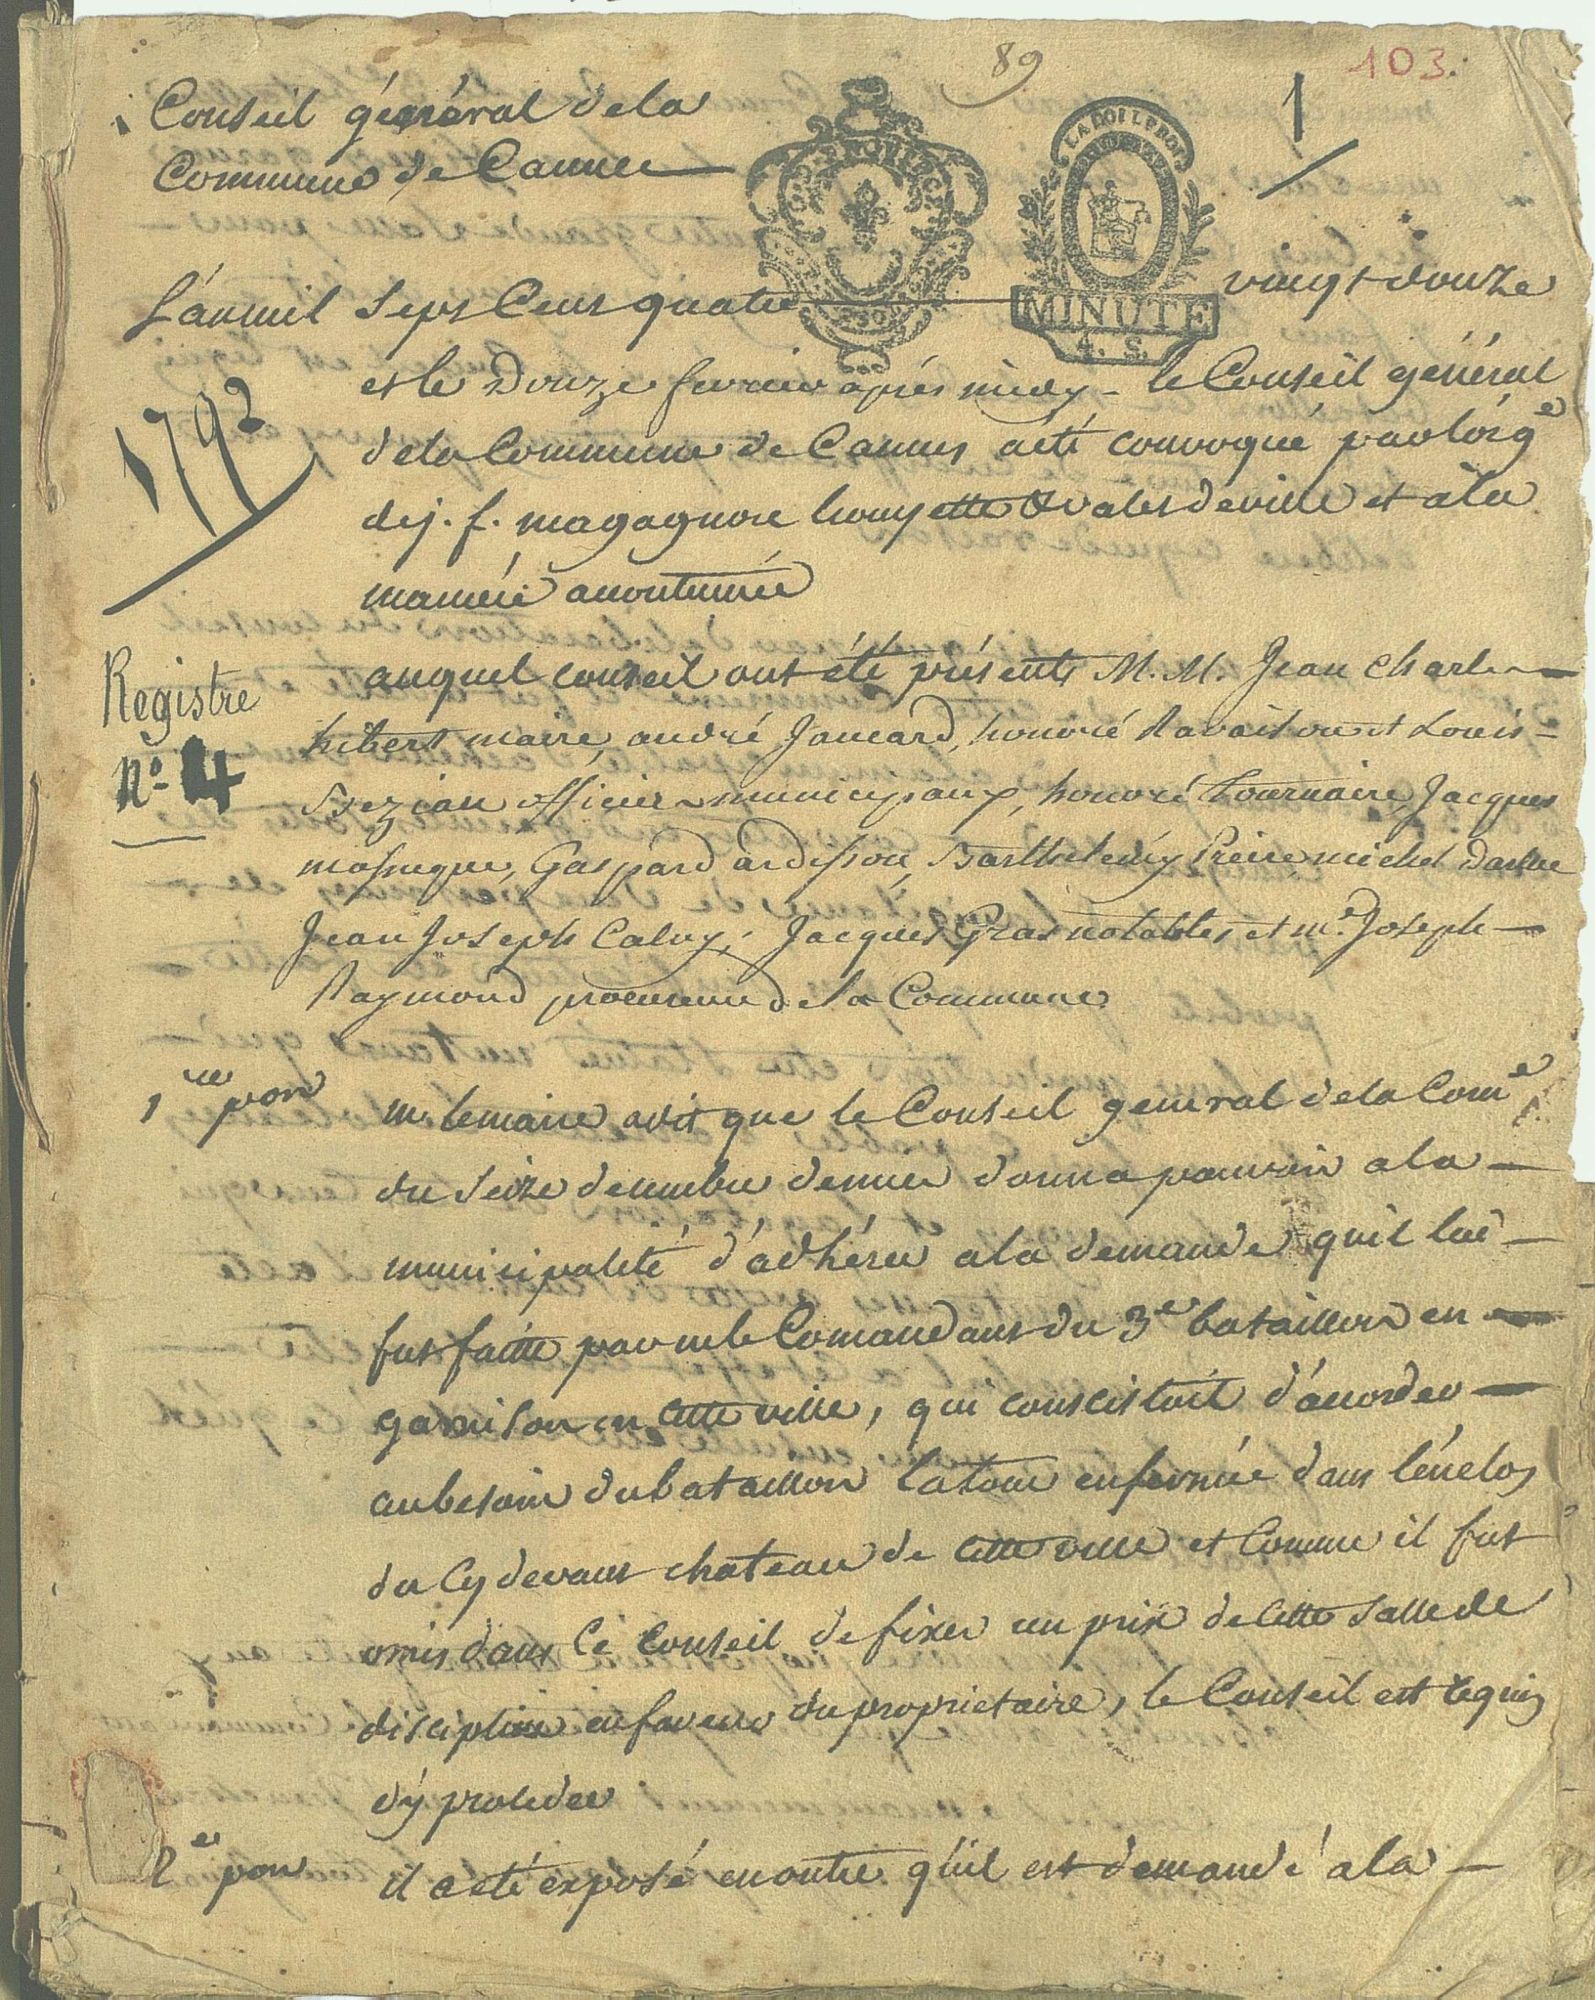 89
103.
1
Conseil général dela
Commune de Cannes
LA LOI LE ROI
MINUTE
4. S.
L'anmil sept Cens quatre vingt douze
et le Douze fevrier après midy - le Conseil général
dela Commune de Cannes aété convoqué par l'org.e
de j. f. magagnosc trompette & valet de ville et àla
manière accoutumée
1792
Registre
N.o 4
auquel conseil ont été présents M. M. Jean Charles
hibert maire, andré Jaucard, honoré Ravaisou et Louis
Bezian officiers municipaux, honoré tournaire, Jacques
massuque, Gaspard ardisson, Barthelemy Preire michel Darluc
Jean Joseph Calvy, Jacques Gras notables, et m.e Joseph
Raymond procureur de la Commune
1re pon
m. lemaire adit que le Conseil général dela Com.e
du seize decembre dernier donna pouvoir ala
municipalité d'adhérer ala demande qu'il lui
fut faitte par m le Comandant du 3.e bataillon en
garnison en cette ville, qui consistoit d'accorder
aubesoin dubataillon latour enfermée dans l'énclos
du Cy devant chateau de cette ville et Comme il fut
omis dans Ce Conseil de fixer un prix de Cette Salle de
discipline enfaveur du proprietaire, le Conseil est requis
d'y proceder
2e pon
il aeté exposé enoutre qu'il est demandé ala